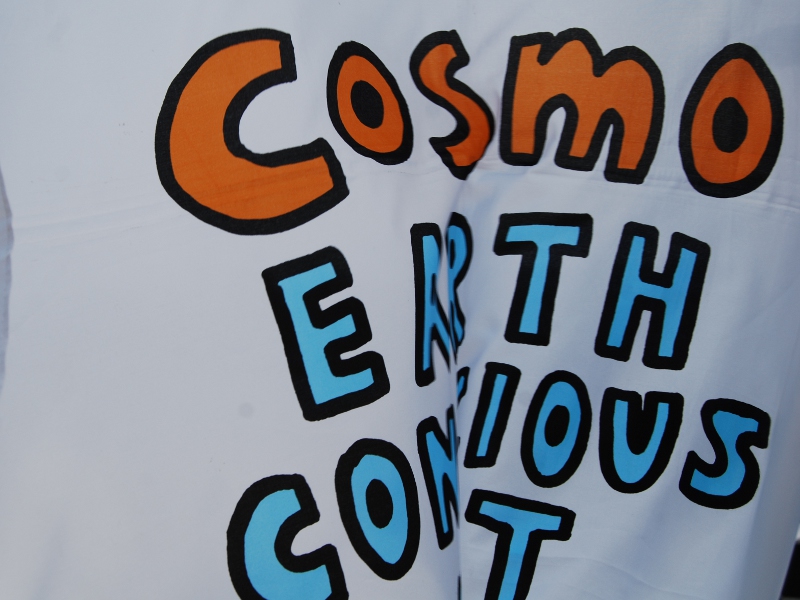 COSMO
EARTH
CONSCIOUS
T